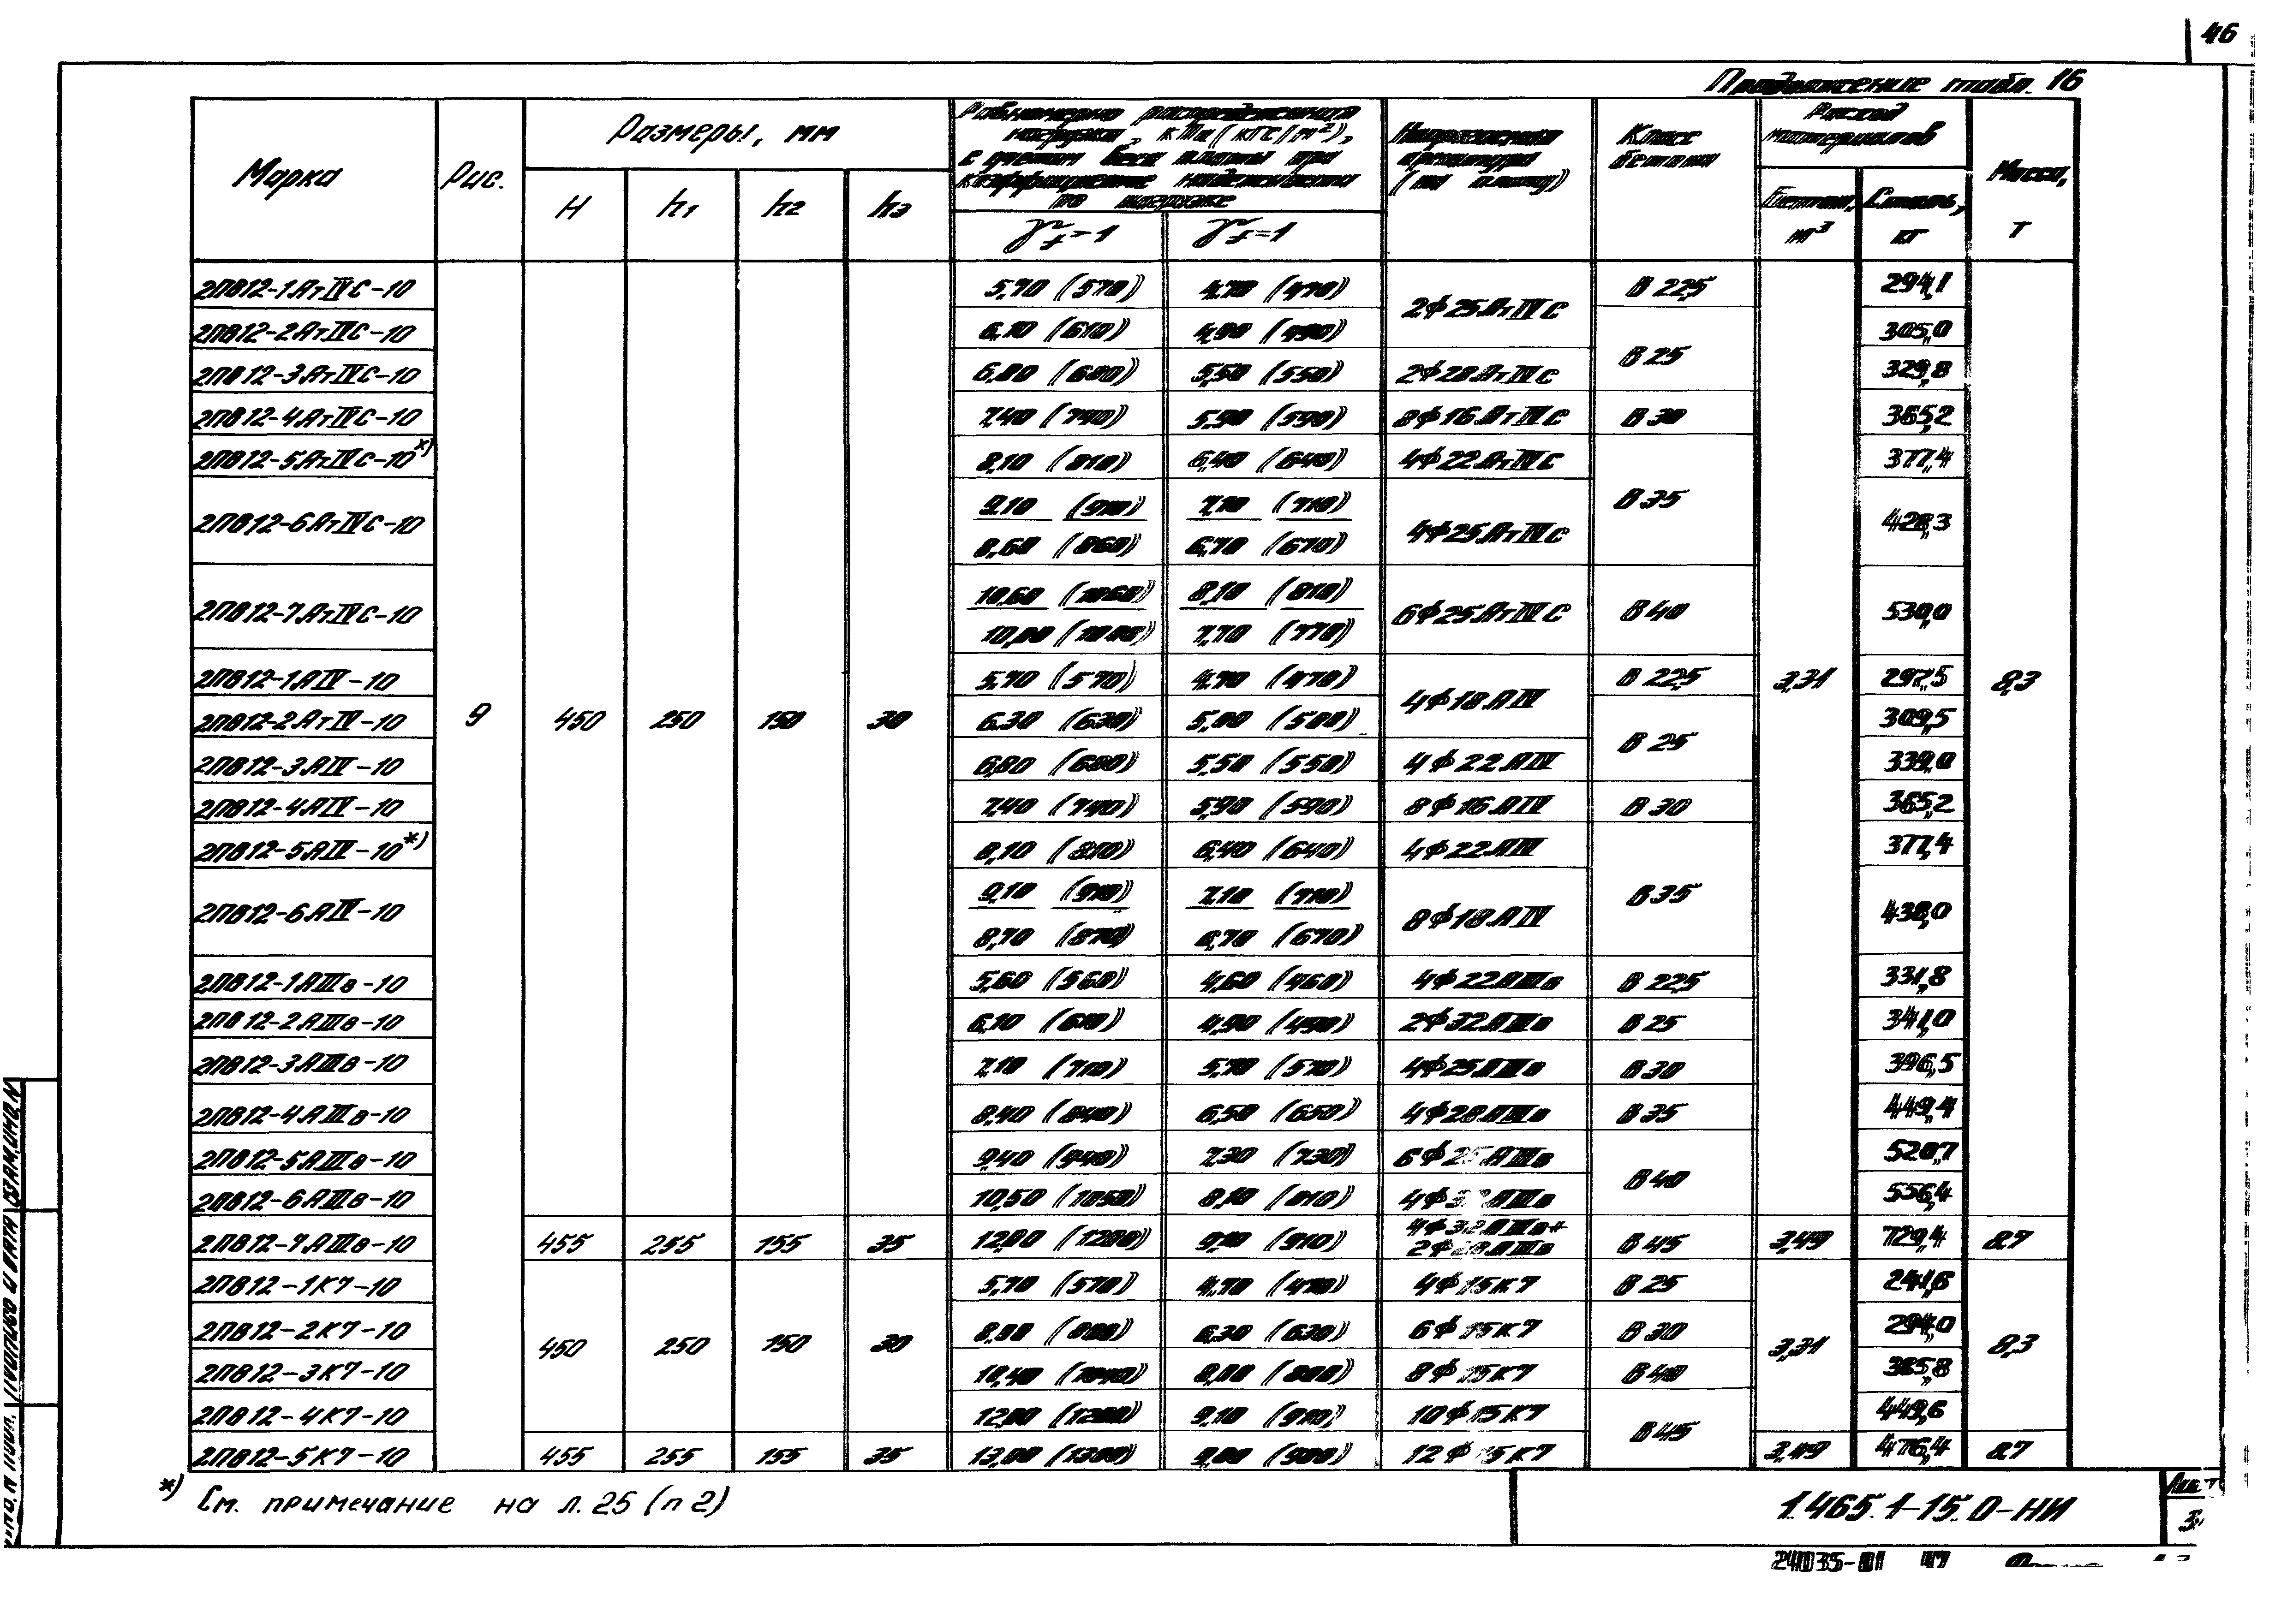 46
Продолжение табл. 16
Марка
Рис.
Размеры, мм
H h1 h2 h3
Равномерно распределенная нагрузка, кПа (кгс/м²), с учетом веса плиты при коэффициенте надежности по нагрузке
γf>1 γf=1
Напрягаемая арматура (на плиту)
Класс бетона
Расход материалов
Бетон, м³ Сталь, кг
Масса, т
2ПВ12-1АтIVС-10 5,70 (570) 4,70 (470) 2ф25АтIVС В 22,5 294,1
2ПВ12-2АтIVС-10 6,10 (610) 4,90 (490) 305,0
В 25
2ПВ12-3АтIVС-10 6,80 (680) 5,50 (550) 2ф28АтIVС 329,8
2ПВ12-4АтIVС-10 7,40 (740) 5,90 (590) 8ф16АтIVС В 30 365,2
2ПВ12-5АтIVС-10 х) 8,10 (810) 6,40 (640) 4ф22АтIVС 377,4
В 35
2ПВ12-6АтIVС-10 9,10 (910) 7,10 (710) 4ф25АтIVС 428,3
8,60 (860) 6,70 (670)
2ПВ12-7АтIVС-10 10,60 (1060) 8,10 (810) 6ф25АтIVС В 40 530,0
10,00 (1000) 7,70 (770)
2ПВ12-1АIV-10 5,70 (570) 4,70 (470) 4ф18АIV В 22,5 3,31 297,5 8,3
2ПВ12-2АтIV-10 9 450 250 150 30 6,30 (630) 5,00 (500) 309,5
В 25
2ПВ12-3АIV-10 6,80 (680) 5,50 (550) 4ф22АIV 339,0
2ПВ12-4АIV-10 7,40 (740) 5,90 (590) 8ф16АIV В 30 365,2
2ПВ12-5АIV-10 *) 8,10 (810) 6,40 (640) 4ф22АIV 377,4
В 35
2ПВ12-6АIV-10 9,10 (910) 7,10 (710) 8ф18АIV 438,0
8,70 (870) 6,70 (670)
2ПВ12-1АIIIв-10 5,60 (560) 4,60 (460) 4ф22АIIIв В 22,5 331,8
2ПВ12-2АIIIв-10 6,10 (610) 4,90 (490) 2ф32АIIIв В 25 341,0
2ПВ12-3АIIIв-10 7,10 (710) 5,70 (570) 4ф25АIIIв В 30 396,5
2ПВ12-4АIIIв-10 8,40 (840) 6,50 (650) 4ф28АIIIв В 35 449,4
2ПВ12-5АIIIв-10 9,40 (940) 7,30 (730) 6ф25АIIIв 520,7
В 40
2ПВ12-6АIIIв-10 10,50 (1050) 8,10 (810) 4ф32АIIIв 556,4
2ПВ12-7АIIIв-10 455 255 155 35 12,00 (1200) 9,10 (910) 4ф32АIIIв+ 2ф28АIIIв В 45 3,49 729,4 8,7
2ПВ12-1К7-10 5,70 (570) 4,70 (470) 4ф15К7 В 25 241,6
2ПВ12-2К7-10 8,00 (800) 6,30 (630) 6ф15К7 В 30 294,0
450 250 150 30 3,31 8,3
2ПВ12-3К7-10 10,40 (1040) 8,00 (800) 8ф15К7 В 40 385,8
2ПВ12-4К7-10 12,00 (1200) 9,10 (910) 10ф15К7 449,6
В 45
2ПВ12-5К7-10 455 255 155 35 13,00 (1300) 9,00 (900) 12ф15К7 3,49 476,4 8,7
*) См. примечание на л. 25 (п 2)
1.465.1-15.0-НИ
Лист
24035-01 47
Подпись и дата
Взам.инв.N